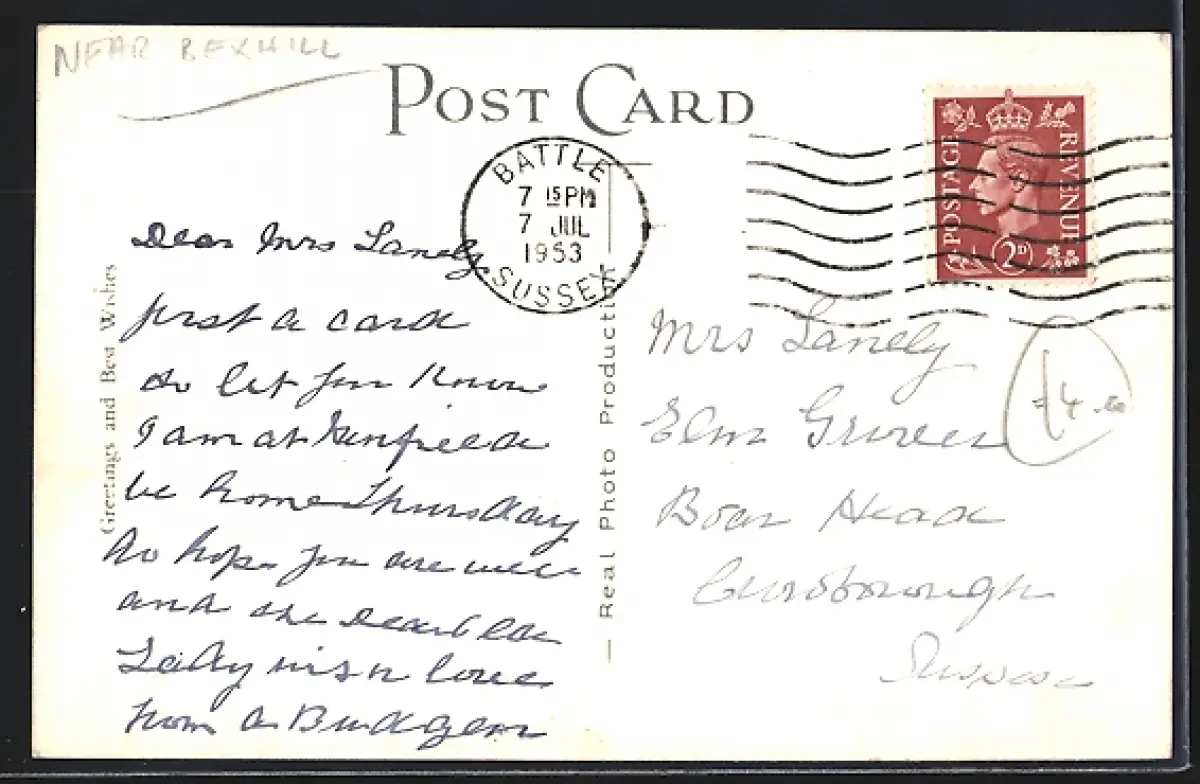 NEAR BEXHILL
POST CARD
BATTLE
7 15 PM
7 JUL
1953
SUSSEX
POSTAGE
REVENUE
2D
Greetings and Best Wishes
Dear Mrs Lanely
Just a card
to let you know
I am at
be home Thursday
do hope you are well
and the Dear
Lady with love
from A Budgen
— Real Photo Production
Mrs Lanely
Elm
Boar Head
Sussex
£4.00